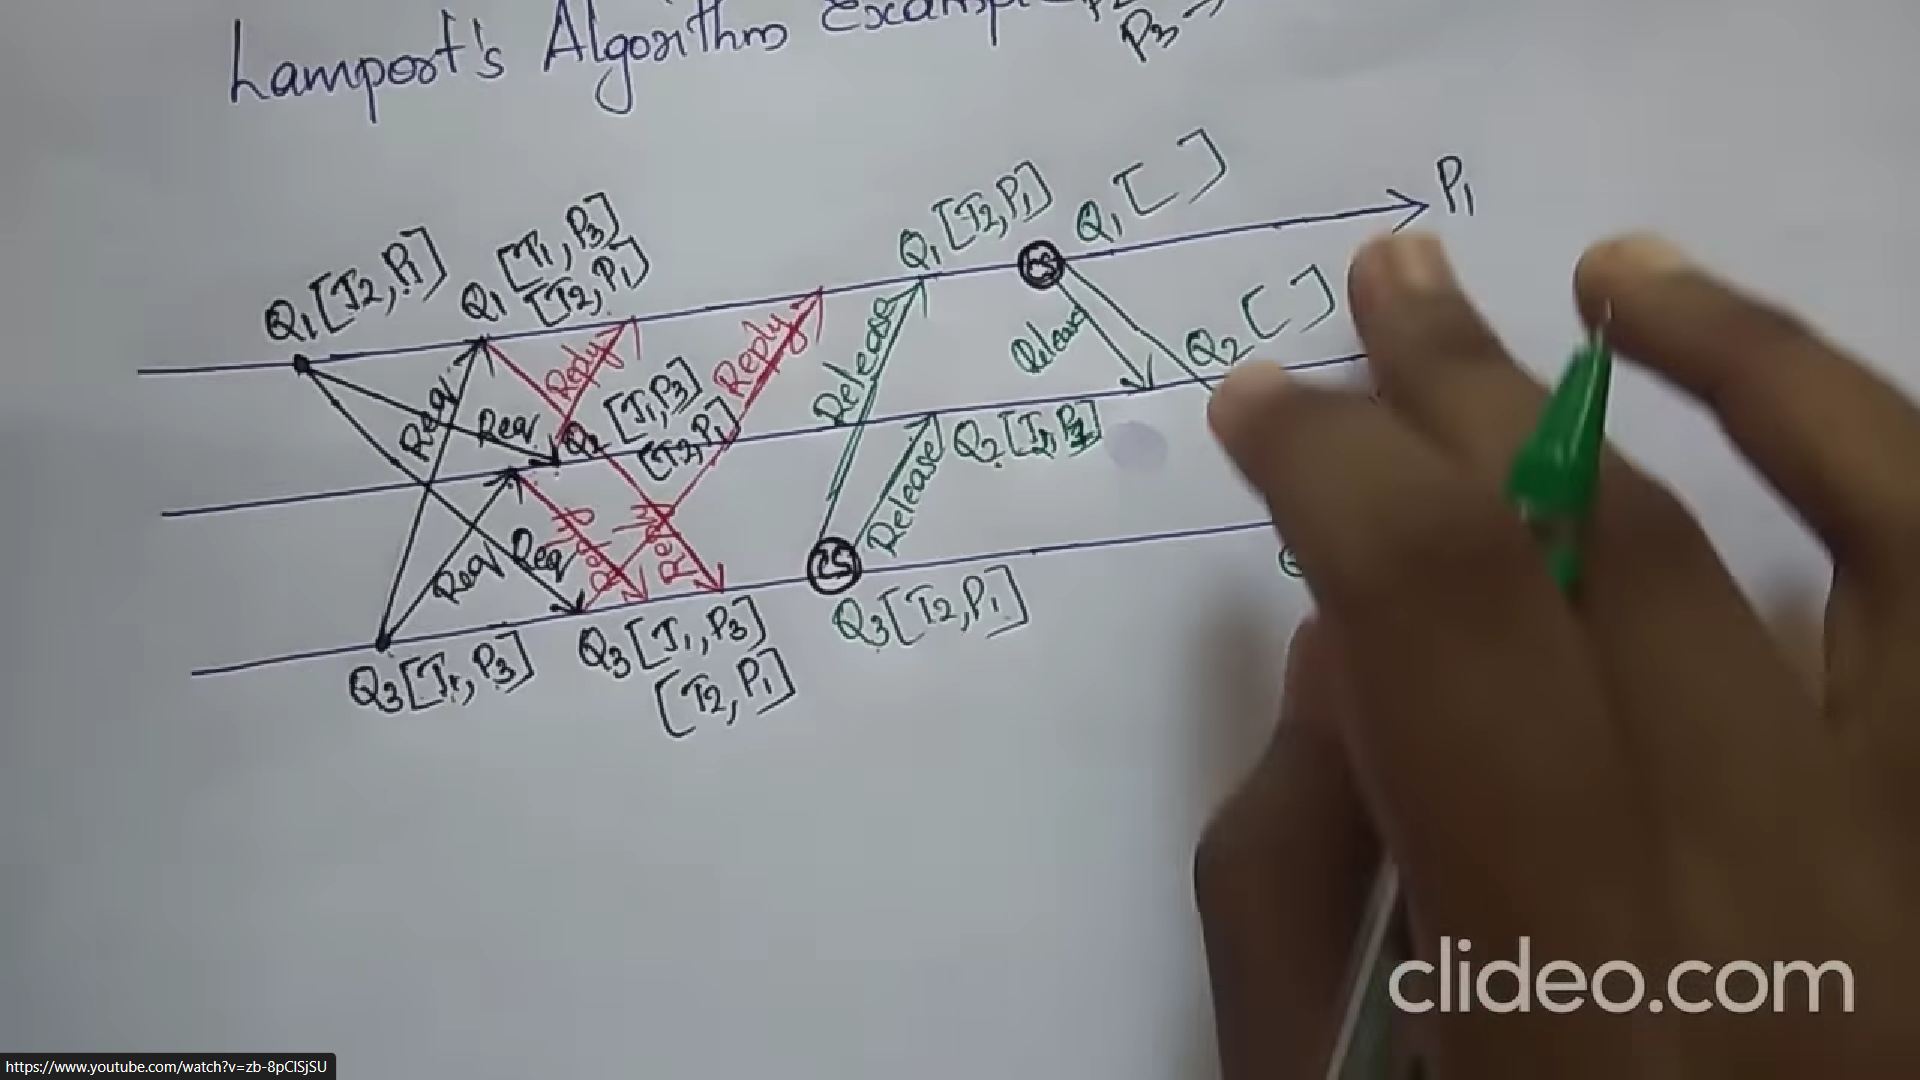 Lamport's Algorithm Example
P3 →
P1
Q1 [T2, P1]
Q1 [T1, P3]
[T2, P1]
Q1 [T2, P1]
Q1 [ ]
Req
Req
Reply
Reply
Release
Release
Q2 [T1, P3]
[T2, P1]
Q2 [ ]
Req
Req
Release
Q2
CS
CS
Q3 [T1, P3]
Q3 [T1, P3]
[T2, P1]
Q3 [T2, P1]
clideo.com
https://www.youtube.com/watch?v=zb-8pClSjSU